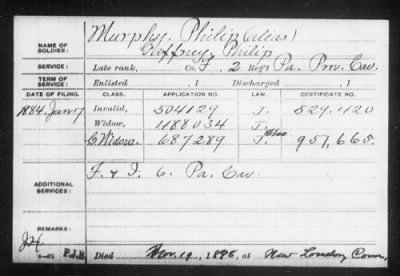 NAME OF SOLDIER: Murphy, Philip (alias)
Gaffney, Philip
SERVICE: Late rank, Co. F, 2 Reg't Pa. Prov. Cav.
TERM OF SERVICE: Enlisted , 1 Discharged , 1
DATE OF FILING. CLASS. APPLICATION NO. LAW. CERTIFICATE NO.
1884. Jan 7 Invalid, 504129 J. 529.420
Widow, 488034 J.
C Widow. 687289 J. 951,665.
ADDITIONAL SERVICES: F. & I. 6. Pa. Cav.
REMARKS:
P.J.B. Died Nov. 19, 1896, at New London Conn.